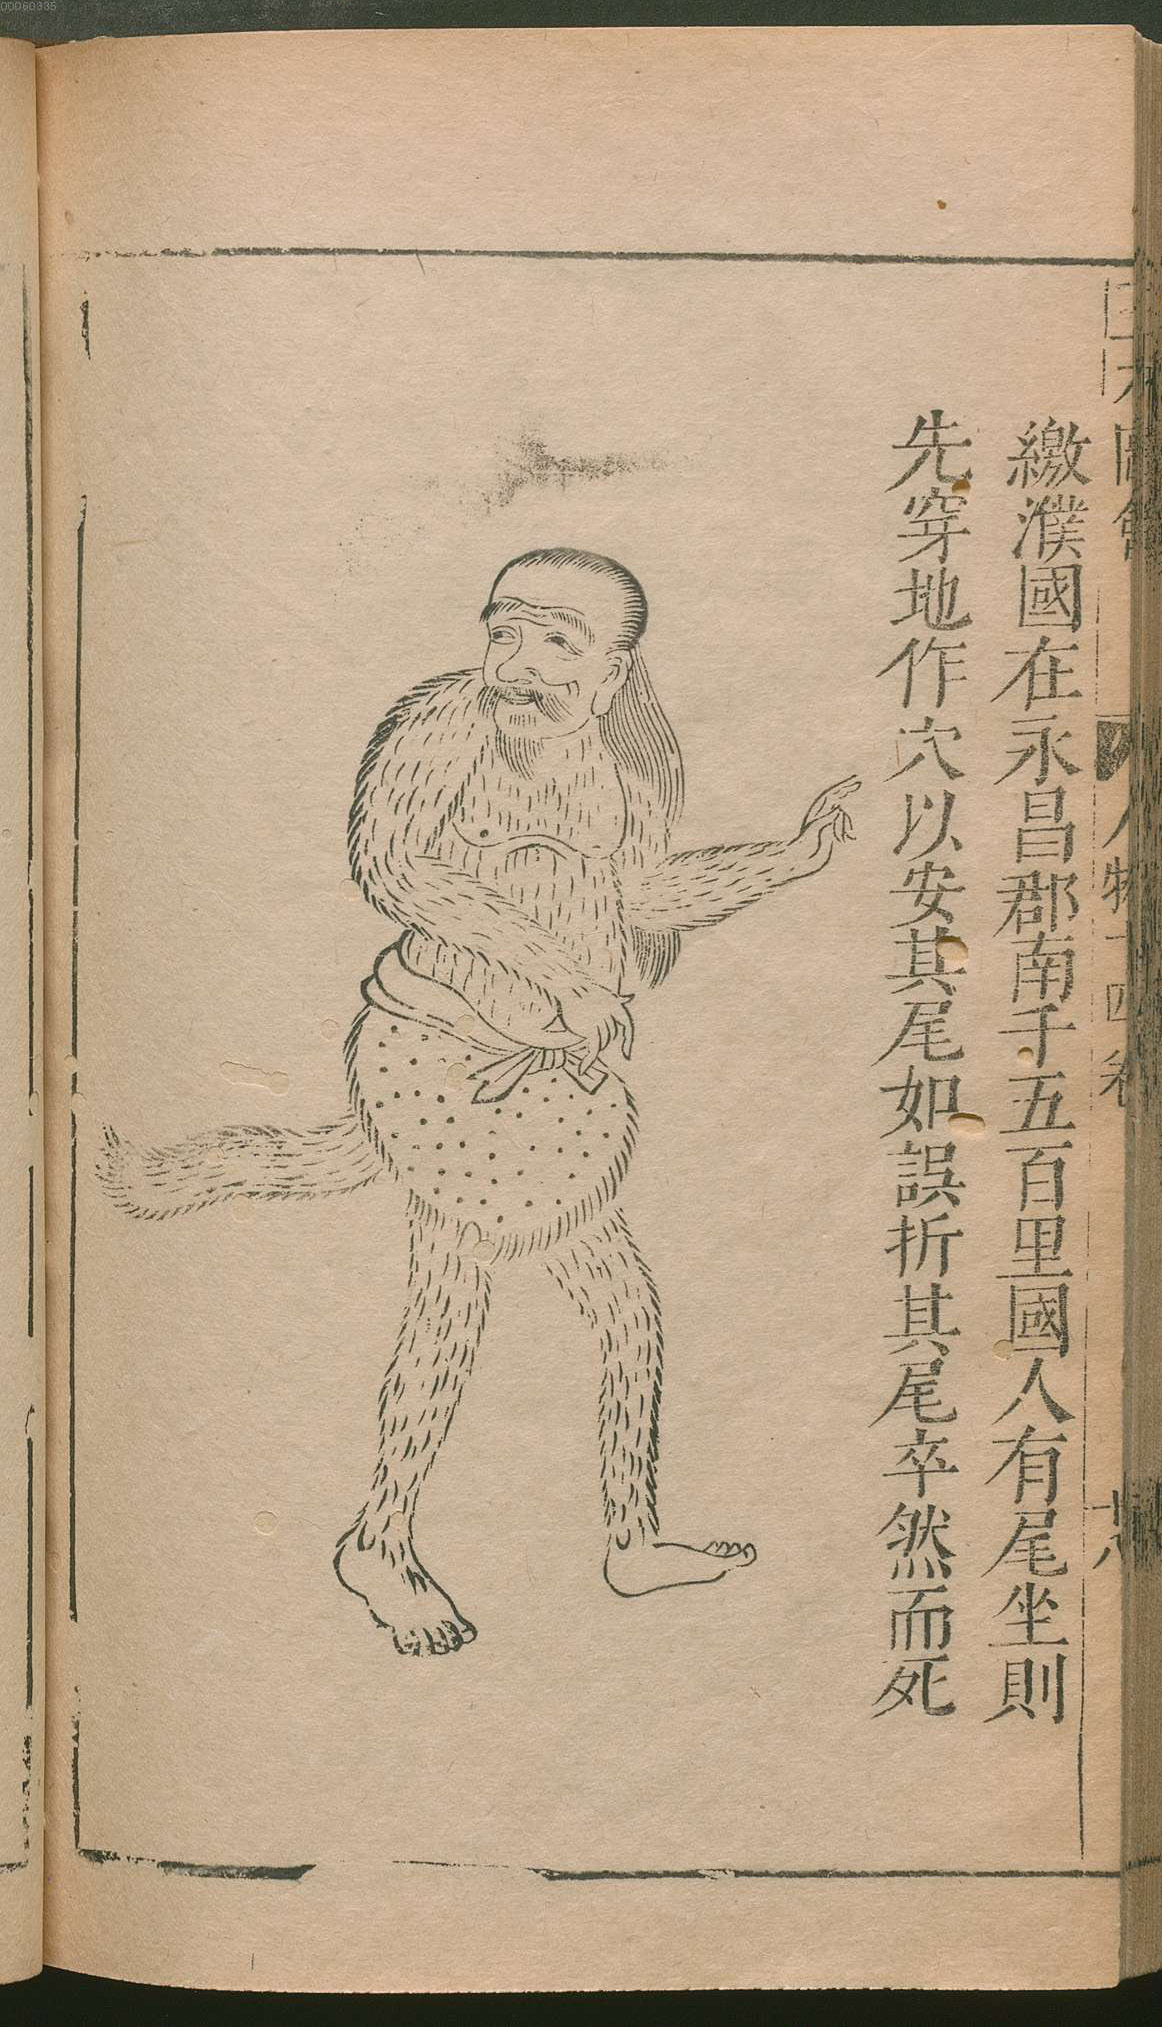 繳濮國在永昌郡南千五百里國人有尾坐則
先穿地作穴以安其尾如誤折其尾卒然而死
人物十四卷
十八
00060335